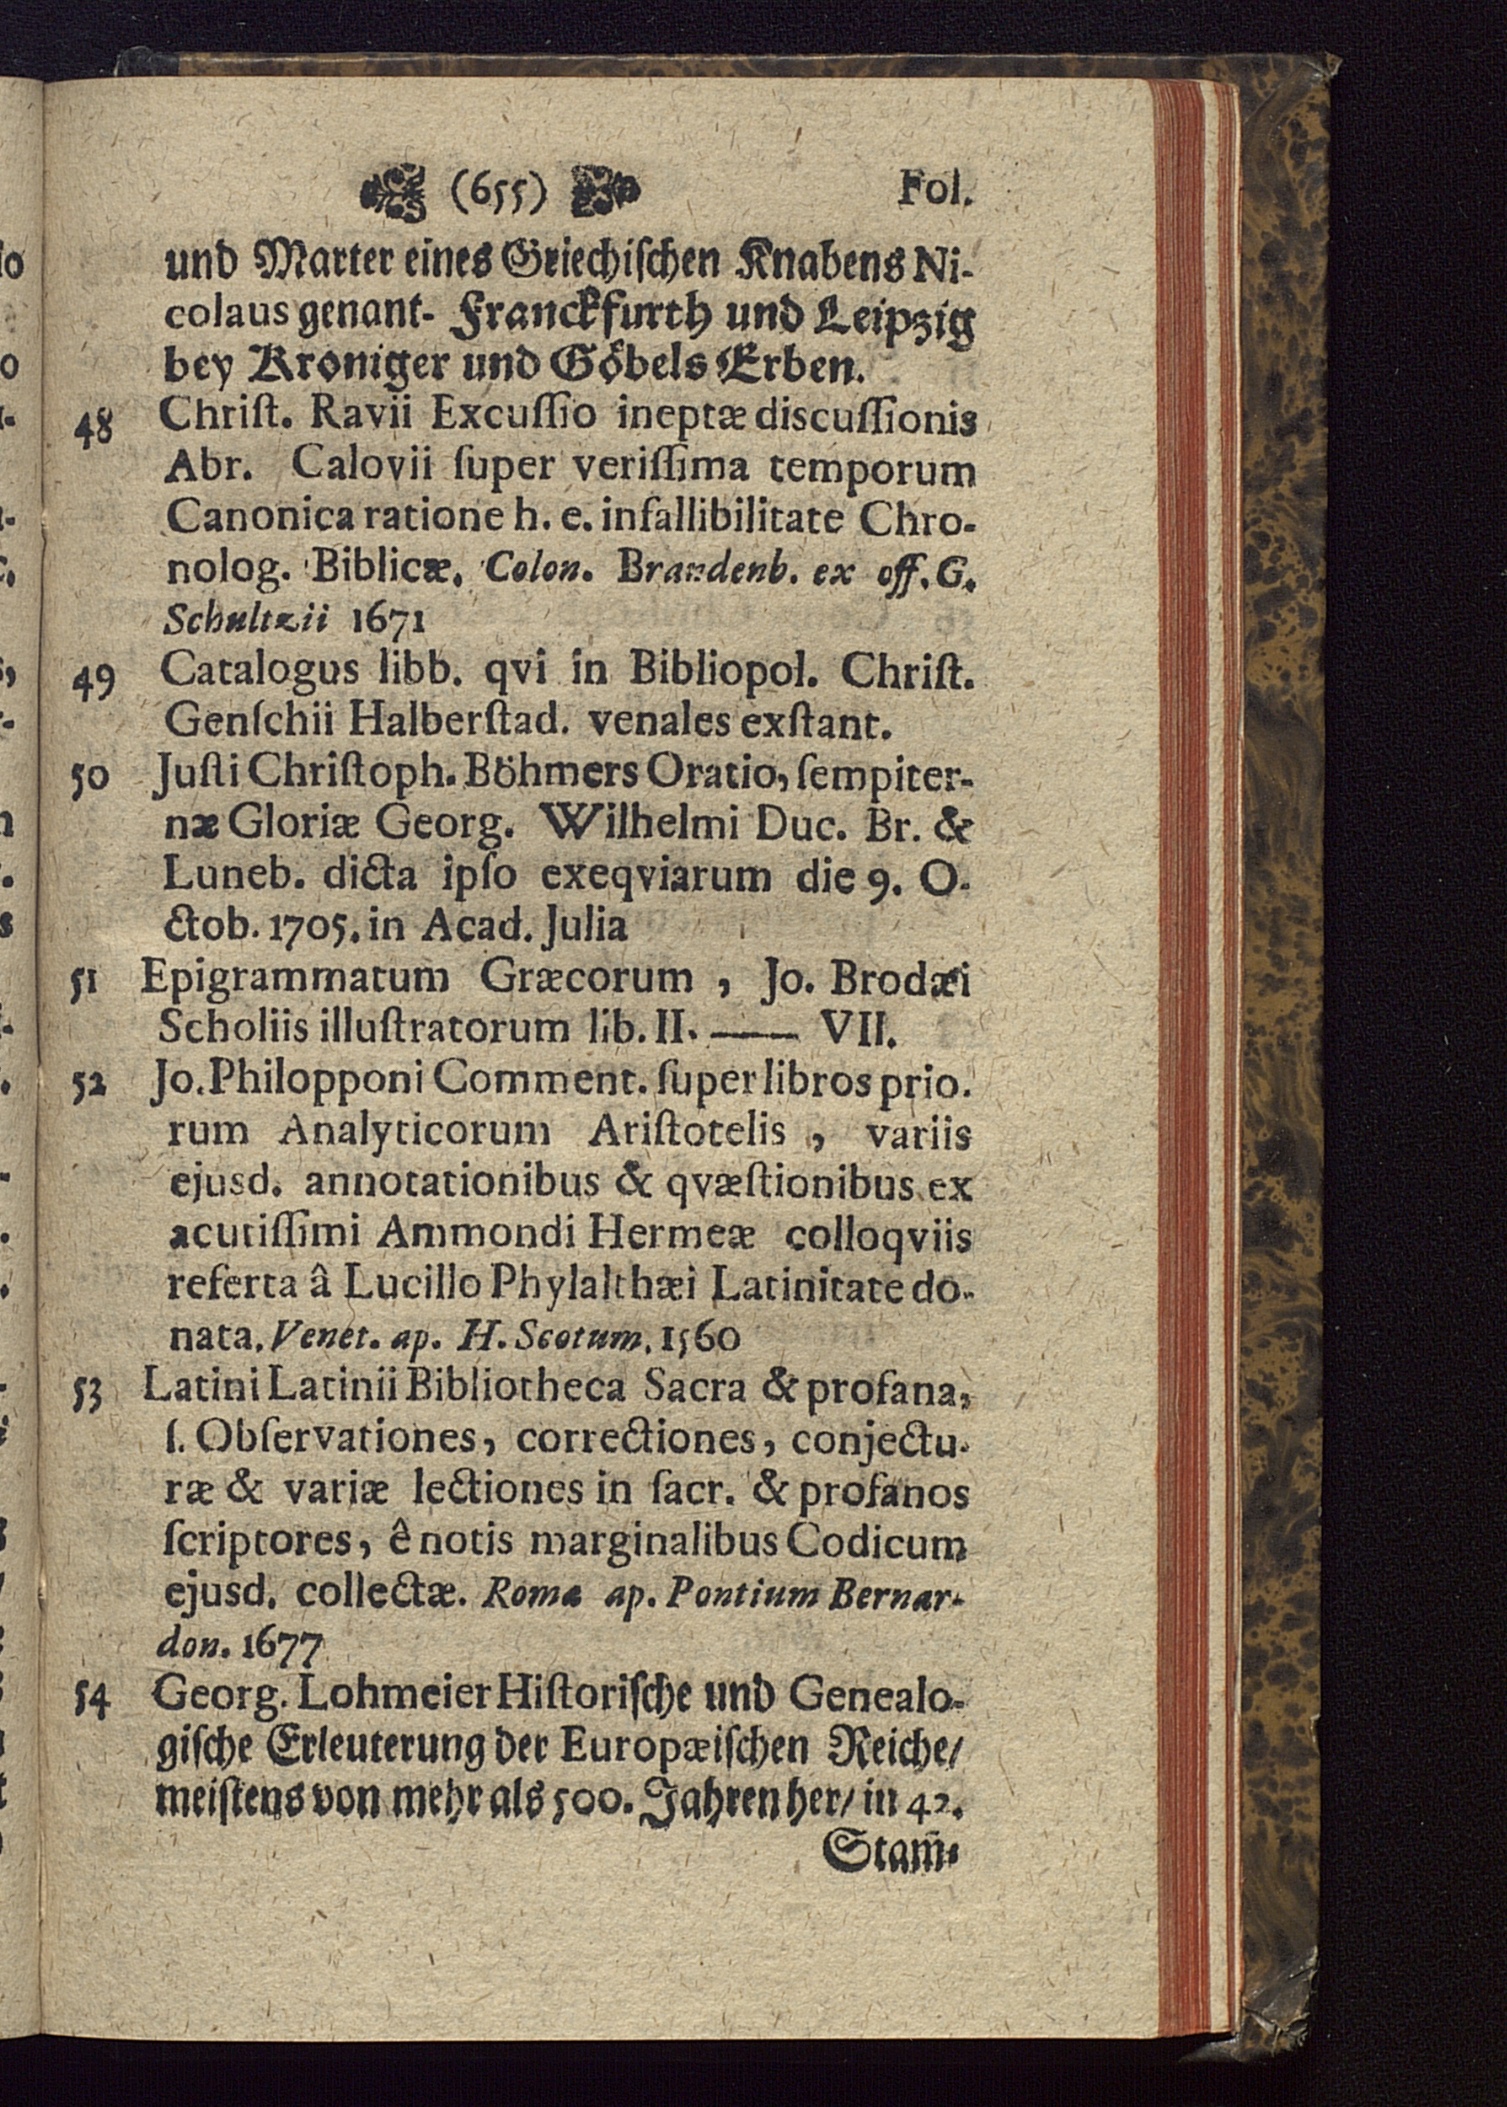 (655) Fol.
und Marter eines Griechiſchen Knabens Ni-
colaus genant- Franckfurth und Leipzig
bey Kroniger und Göbels Erben.
48 Chriſt. Ravii Excuſſio ineptæ diſcuſſionis
Abr. Calovii ſuper veriſſima temporum
Canonica ratione h. e. infallibilitate Chro-
nolog. Biblicæ. Colon. Brandenb. ex off. G.
Schultzii 1671
49 Catalogus libb. qvi in Bibliopol. Chriſt.
Genſchii Halberſtad. venales exſtant.
50 Juſti Chriſtoph. Böhmers Oratio, ſempiter-
næ Gloriæ Georg. Wilhelmi Duc. Br. &
Luneb. dicta ipſo exeqviarum die 9. O-
ctob. 1705. in Acad. Julia
51 Epigrammatum Græcorum , Jo. Brodæi
Scholiis illuſtratorum lib. II. —— VII.
52 Jo. Philopponi Comment. ſuper libros prio.
rum Analyticorum Ariſtotelis , variis
ejusd. annotationibus & qvæſtionibus ex
acutiſſimi Ammondi Hermeæ colloqviis
referta â Lucillo Phylalthæi Latinitate do-
nata. Venet. ap. H. Scotum. 1560
53 Latini Latinii Bibliotheca Sacra & profana,
ſ. Obſervationes, correctiones, conjectu-
ræ & variæ lectiones in ſacr. & profanos
ſcriptores, ê notis marginalibus Codicum
ejusd. collectæ. Roma ap. Pontium Bernar-
don. 1677
54 Georg. Lohmeier Hiſtoriſche und Genealo-
giſche Erleuterung der Europæiſchen Reiche/
meiſtens von mehr als 500. Jahren her/ in 42.
Stam̃-